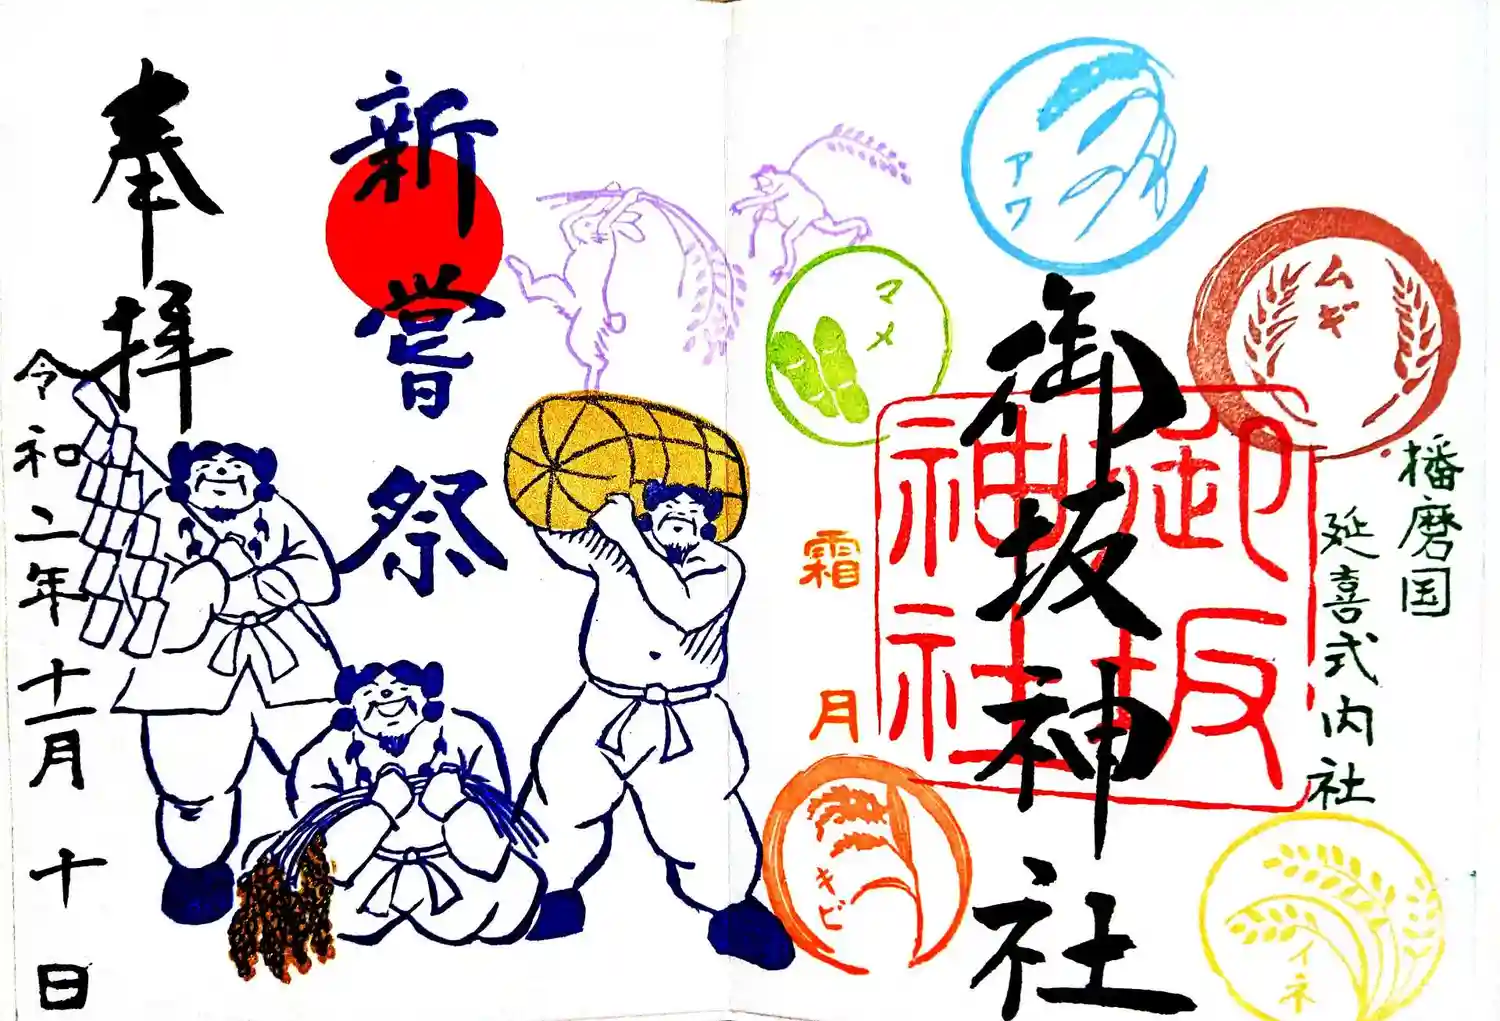 播磨国
延喜式内社
御坂神社
御坂
神社
霜月
アワ
ムギ
マメ
キビ
イネ
新嘗祭
奉拝
令和二年十一月十日